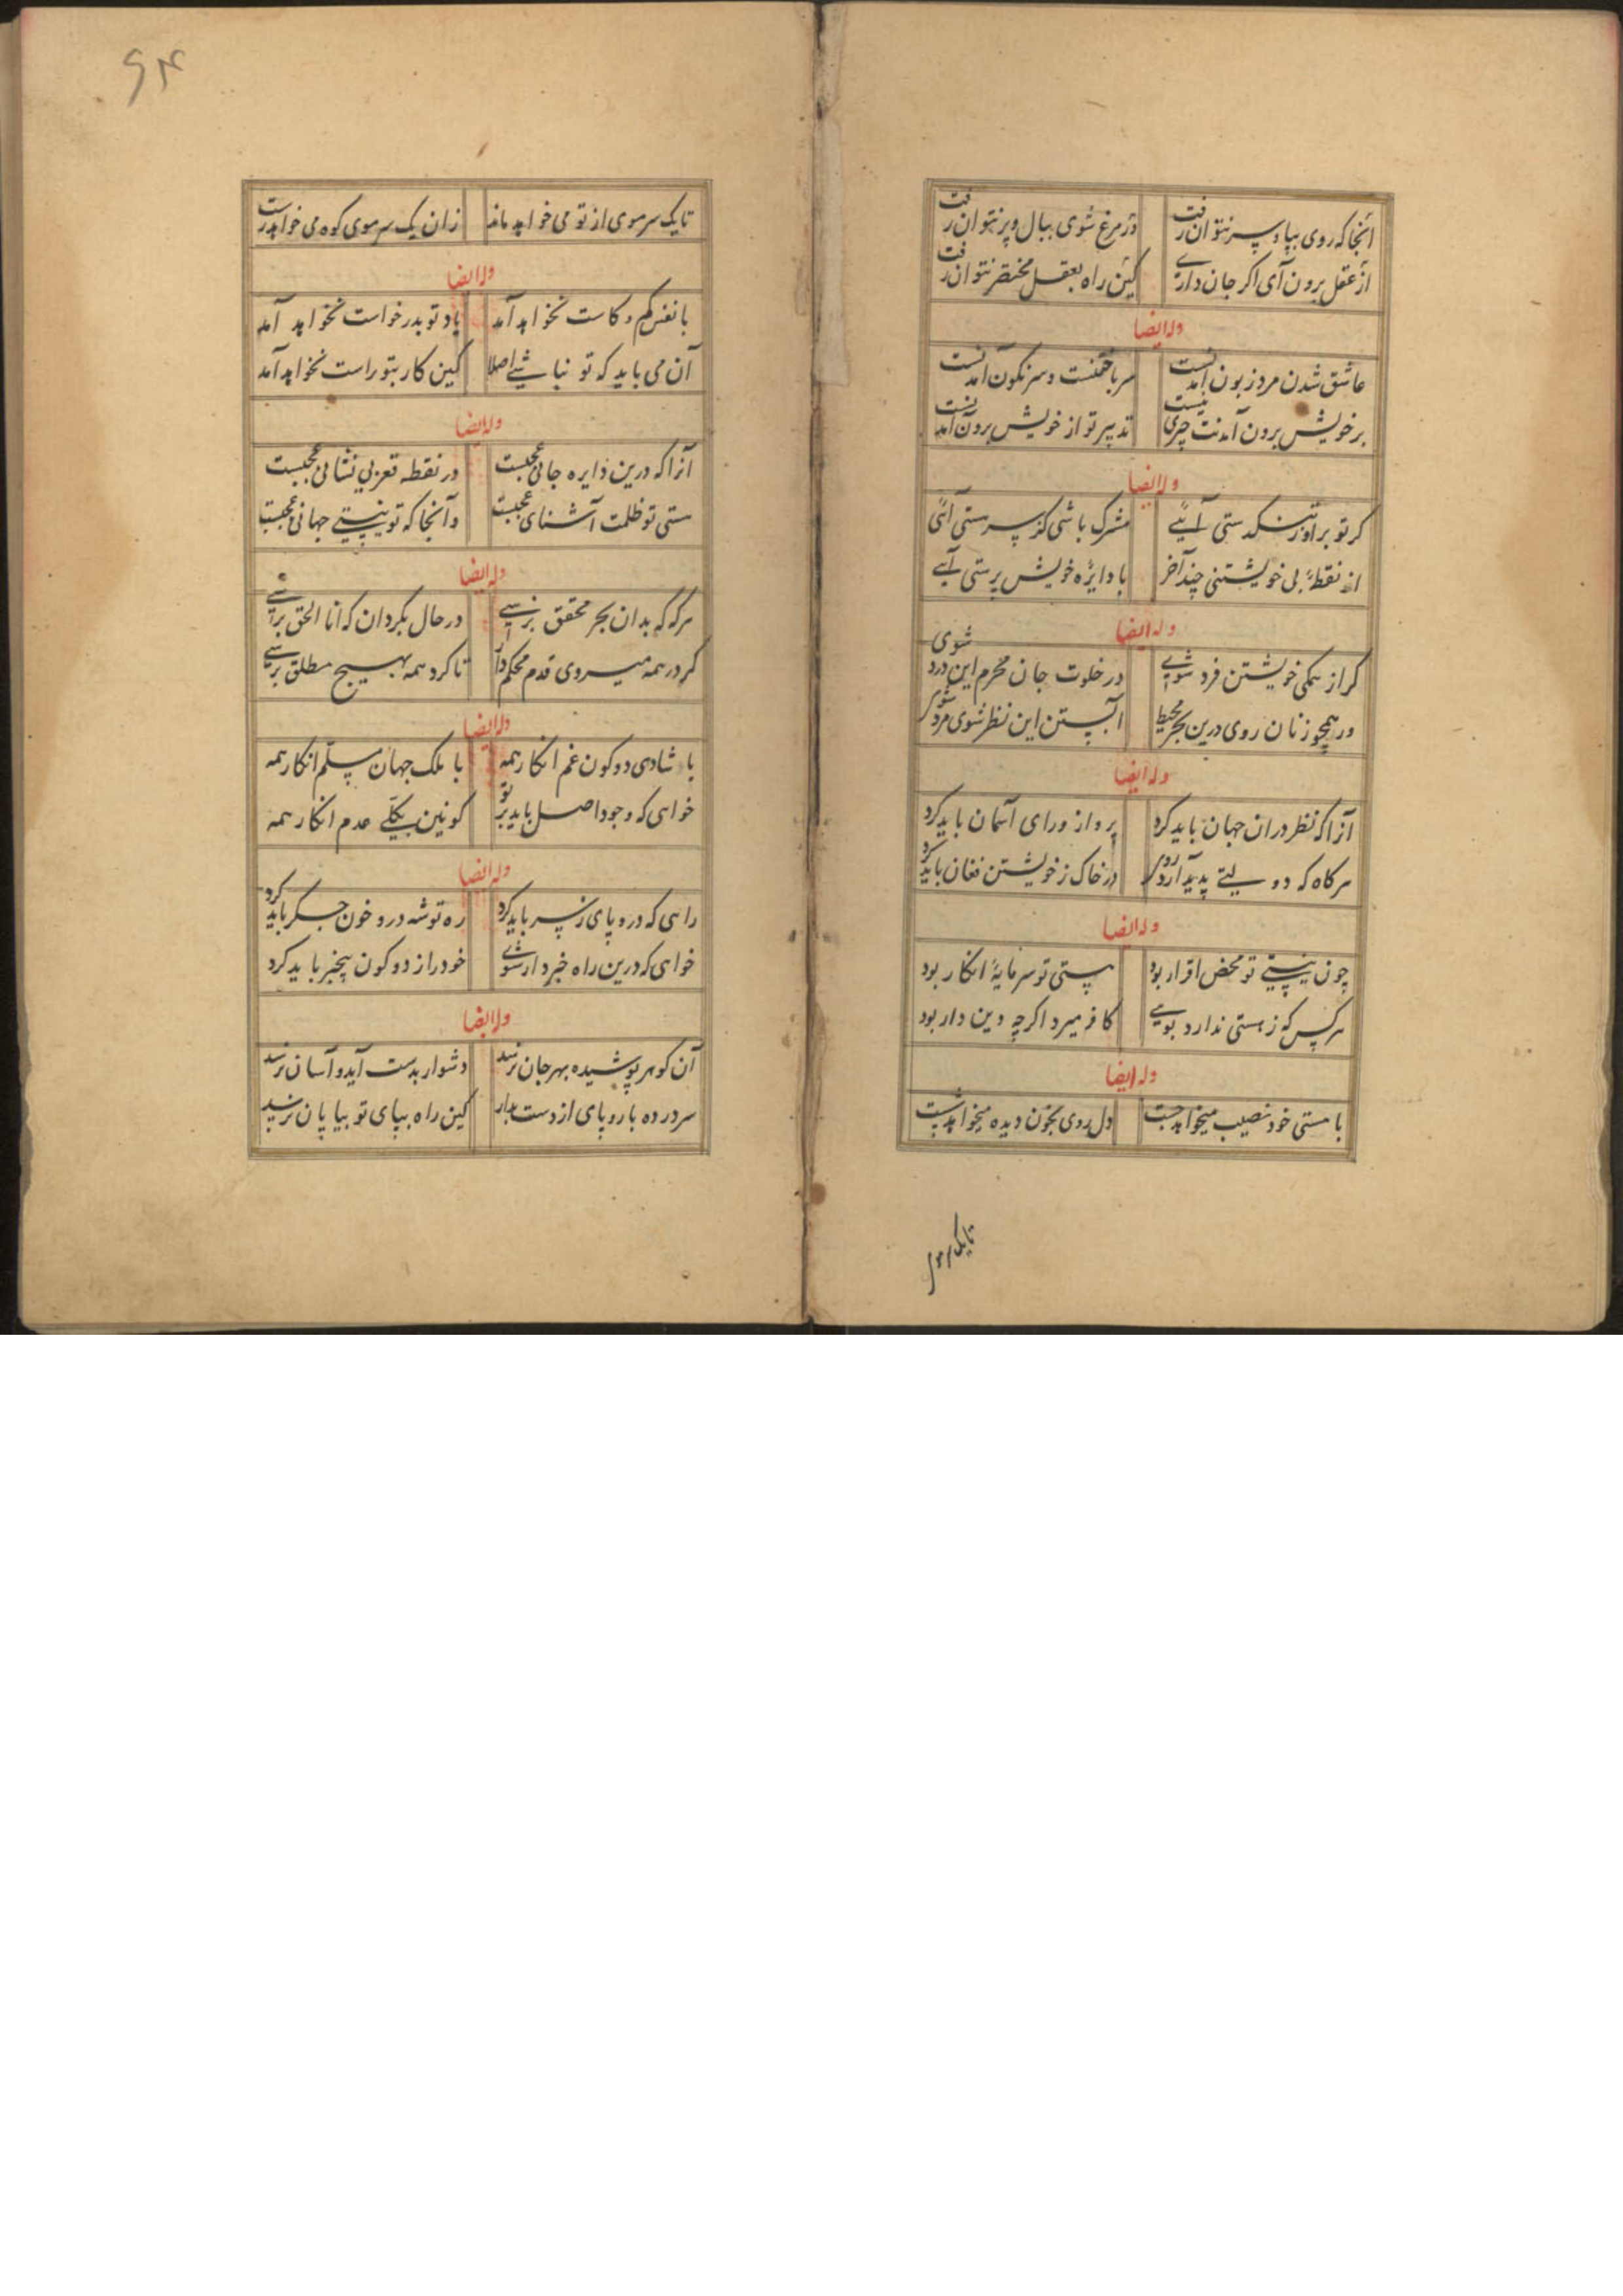 آنجا که روی بپا و سر نتوان رفت
ور مرغ شوی ببال و پر نتوان رفت
از عقل برون آی اکر جان داری
کین راه بعقل مختصر نتوان رفت
وله ایضا
عاشق شدن مرد زبون آمدنست
سر باختنست و سرنکون آمدنست
بر خویش برون آمدنت چیزی نیست
تدبیر تو از خویش برون آمدنست
وله ایضا
کر تو بر او ز تنکدستی آیی
مشرک باشی کر بپرستی آئی
از نقطۀ بی خویشتنی چند آخر
با دایره خویش پرستی آیی
وله ایضا
کر از همکی خویشتن فرد شوی
در خلوت جان محرم این درد شوی
ور همچو زنان روی درین بحر محیط
آبستن این نظر شوی مرد شوی
وله ایضا
آنرا که نظر در ان جهان باید کرد
پرواز ورای آسمان باید کرد
هرکاه که دولتی پدید آرد روی
در خاک ز خویشتن فغان باید کرد
وله ایضا
چون نیستی تو محض اقرار بود
هستی تو سرمایۀ انکار بود
هر کس که ز هستی ندارد بویی
کافر میرد اکرچه دین دار بود
وله ایضا
با هستی خود نصیب میخواهد جست
دل روی بخون دیده میخواهد شست
تایک سر موی
۶۴
تا یک سر موی از تو می خواهد ماند
زان یک سر موی کوه می خواهد رست
وله ایضا
با نفس کم و کاست نخواهد آمد
یاد تو بدرخواست نخواهد آمد
آن می باید که تو نباشی اصلا
کین کار بتو راست نخواهد آمد
وله ایضا
آنرا که درین دایره جانی عجبست
در نقطه فقر بی نشانی عجبست
هستی تو ظلمت آشنای عجبست
و آنجا که تو نیستی جهانی عجبست
وله ایضا
هرکه که بدان بحر محقق برسی
در حال بکردان که انا الحق برسی
کر در همه میروی قدم محکم دار
تا کرد همه بهیچ مطلق برسی
وله ایضا
با شادی دو کون غم انکار همه
با ملک جهان مسلم انکار همه
خواهی که وجود اصل باید بر تو
کونین بکلی عدم انکار همه
وله ایضا
راهی که درو پای ز سر باید کرد
ره توشه درو خون جکر باید کرد
خواهی که درین راه خبردار شوی
خود را ز دو کون بیخبر باید کرد
وله ایضا
آن کوهر پوشیده بهر جان نرسد
دشوار بدست آید و آسان نرسد
سر در ده باروپای از دست بدار
کین راه بپای تو بپایان نرسد